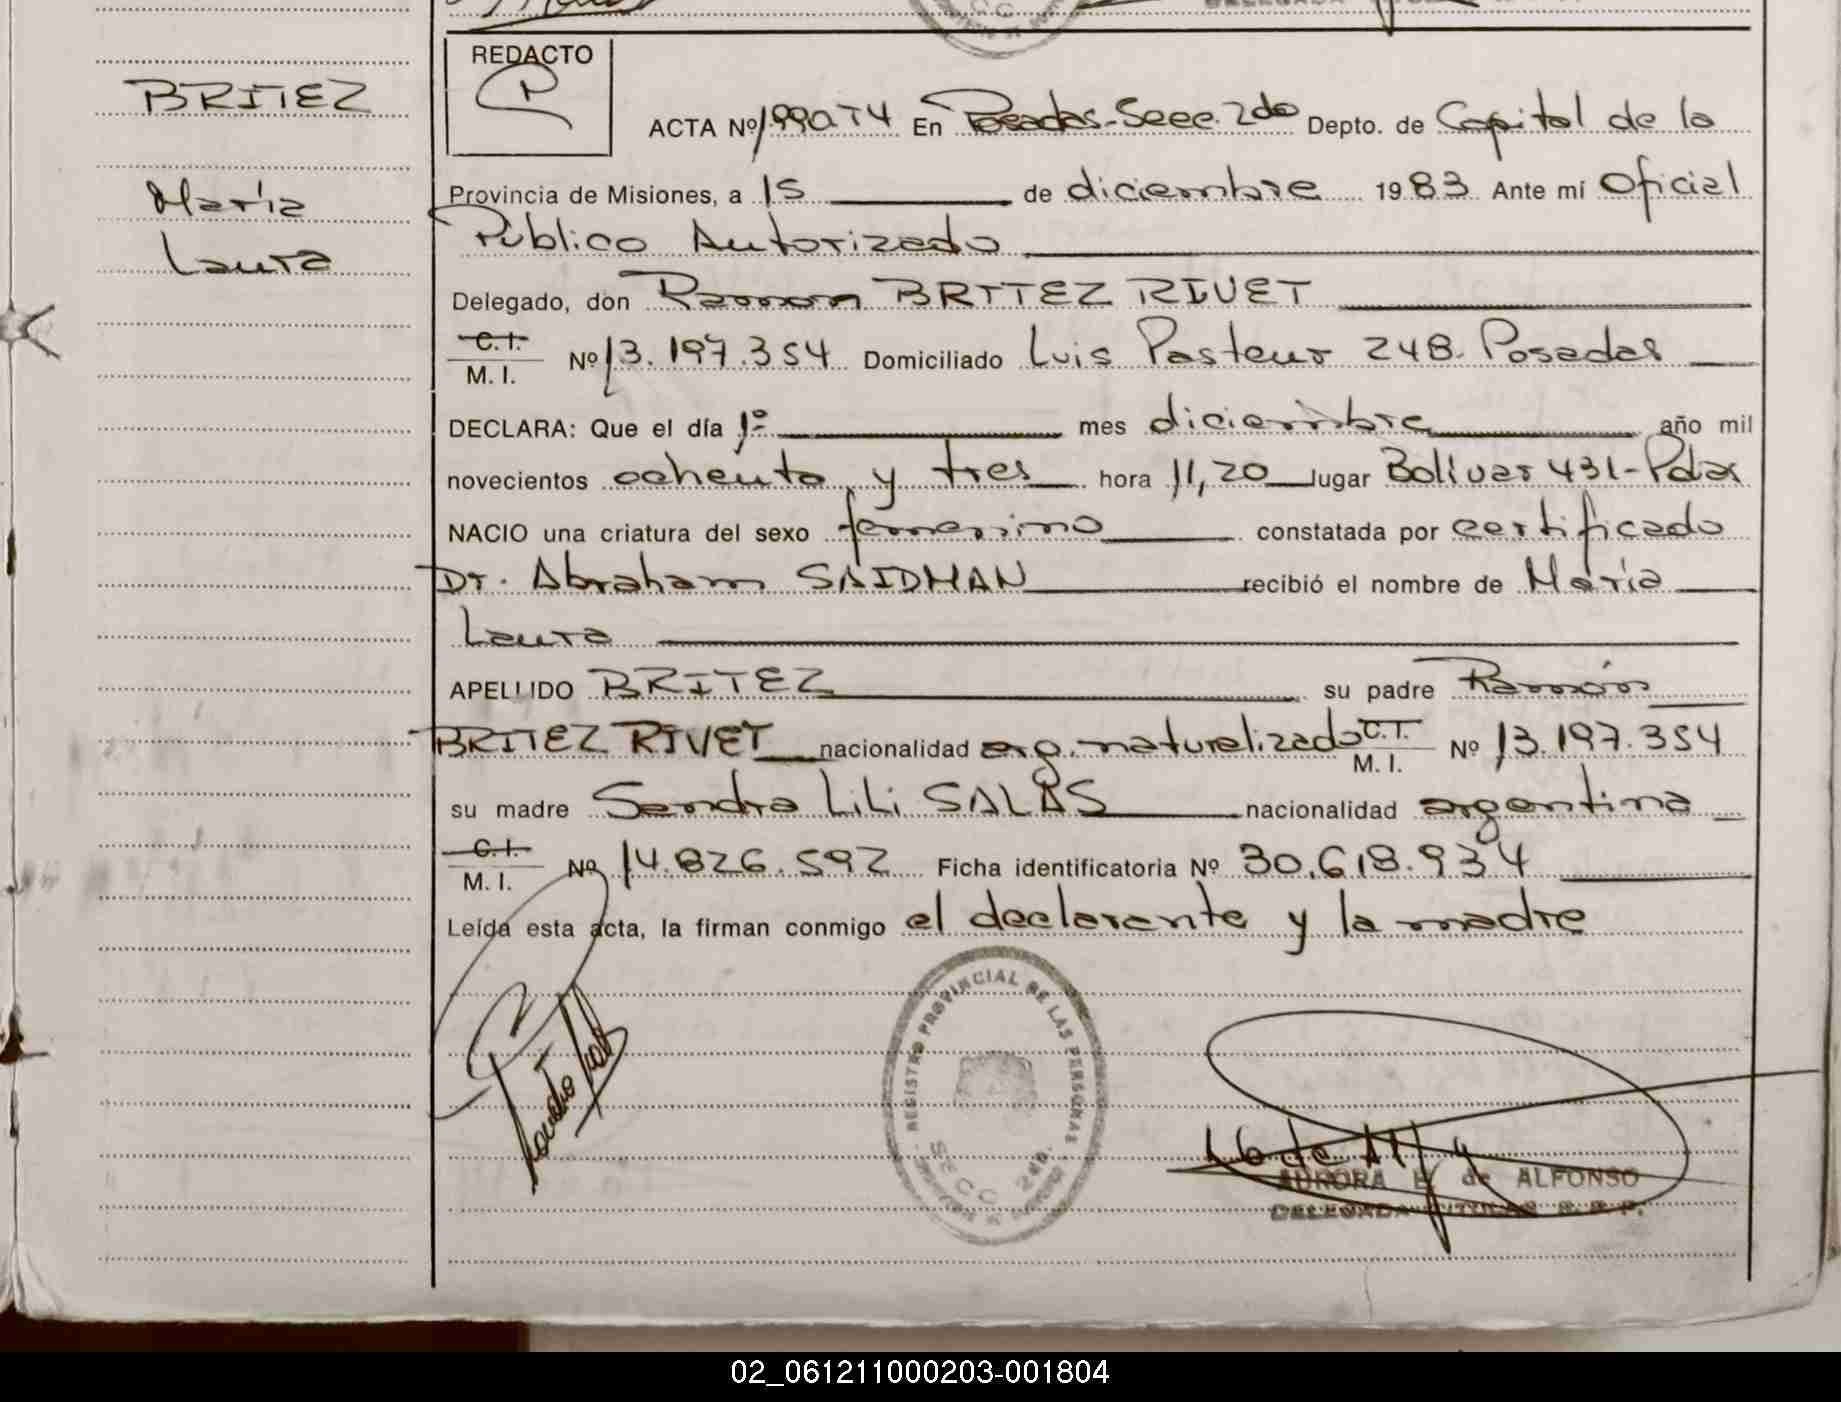 BRITEZ
María
Laura
REDACTO
ACTA Nº 1990 T4 En Posadas-Secc. 2da Depto. de Capital de la
Provincia de Misiones, a 15 de diciembre 1983 Ante mí Oficial
Público Autorizado
Delegado, don Ramon BRITEZ RIVET
C.I.
M. I. Nº 13.197.354 Domiciliado Luis Pasteur 248. Posadas
DECLARA: Que el día 1º mes diciembre año mil
novecientos ochenta y tres hora 11,20 lugar Bolivar 431-Pdas
NACIO una criatura del sexo femenino constatada por certificado
Dr. Abraham SAIDMAN recibió el nombre de María
Laura
APELLIDO BRITEZ su padre Ramón
BRITEZ RIVET nacionalidad arg. naturalizado C.I.
M. I. Nº 13.197.354
su madre Sandra Lili SALAS nacionalidad argentina
C.I.
M. I. Nº 14.826.592 Ficha identificatoria Nº 30.618.934
Leída esta acta, la firman conmigo el declarante y la madre
REGISTRO PROVINCIAL DE LAS PERSONAS
SECC 2da.
AURORA E. de ALFONSO
DELEGADA TITULAR R.P.P.
02_061211000203-001804